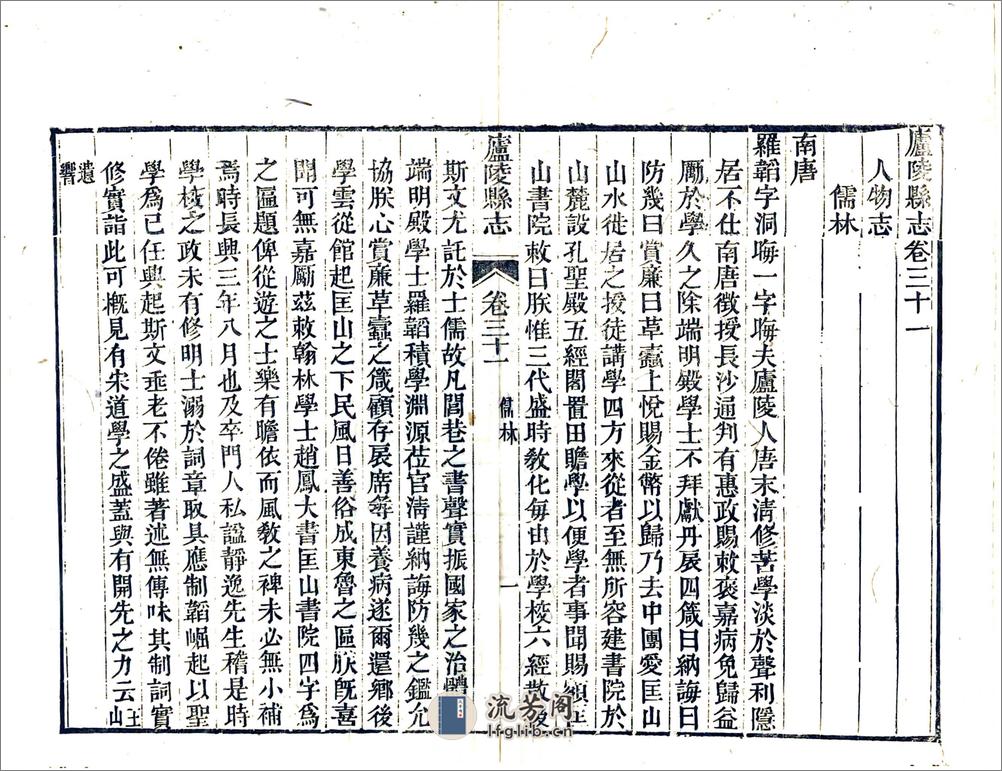 廬陵縣志卷三十一
人物志
儒林
南唐
羅韜字洞晦一字晦夫廬陵人唐末清修苦學淡於聲利隱
居不仕南唐徵授長沙通判有惠政賜敕褒嘉病免歸益
勵於學久之除端明殿學士不拜獻丹扆四箴曰納誨曰
防幾曰賞廉曰草蠹上悅賜金幣以歸乃去中團愛匡山
山水徙居之授徒講學四方來從者至無所容建書院於
山麓設孔聖殿五經閣置田贍學以便學者事聞賜額匡
山書院敕曰朕惟三代盛時教化每由於學校六經散後
廬陵縣志
卷三十一
儒林
一
斯文尤託於士儒故凡閭巷之書聲實振國家之治體
端明殿學士羅韜積學淵源莅官清謹納誨防幾之鑑允
協朕心賞廉草蠹之箴顧存扆席尋因養病遂爾還鄉後
學雲從館起匡山之下民風日善俗成東魯之區朕旣喜
聞可無嘉勵茲敕翰林學士趙鳳大書匡山書院四字為
之區題俾從遊之士樂有瞻依而風敎之裨未必無小補
焉時長興三年八月也及卒門人私諡靜逸先生稽是時
學校之政未有修明士溺於詞章取具應制韜崛起以聖
學爲己任興起斯文垂老不倦雖著述無傳味其制詞實
修實詣此可概見有宋道學之盛蓋與有開先之力云王山
遺響
流芳阁
lfglib.cn